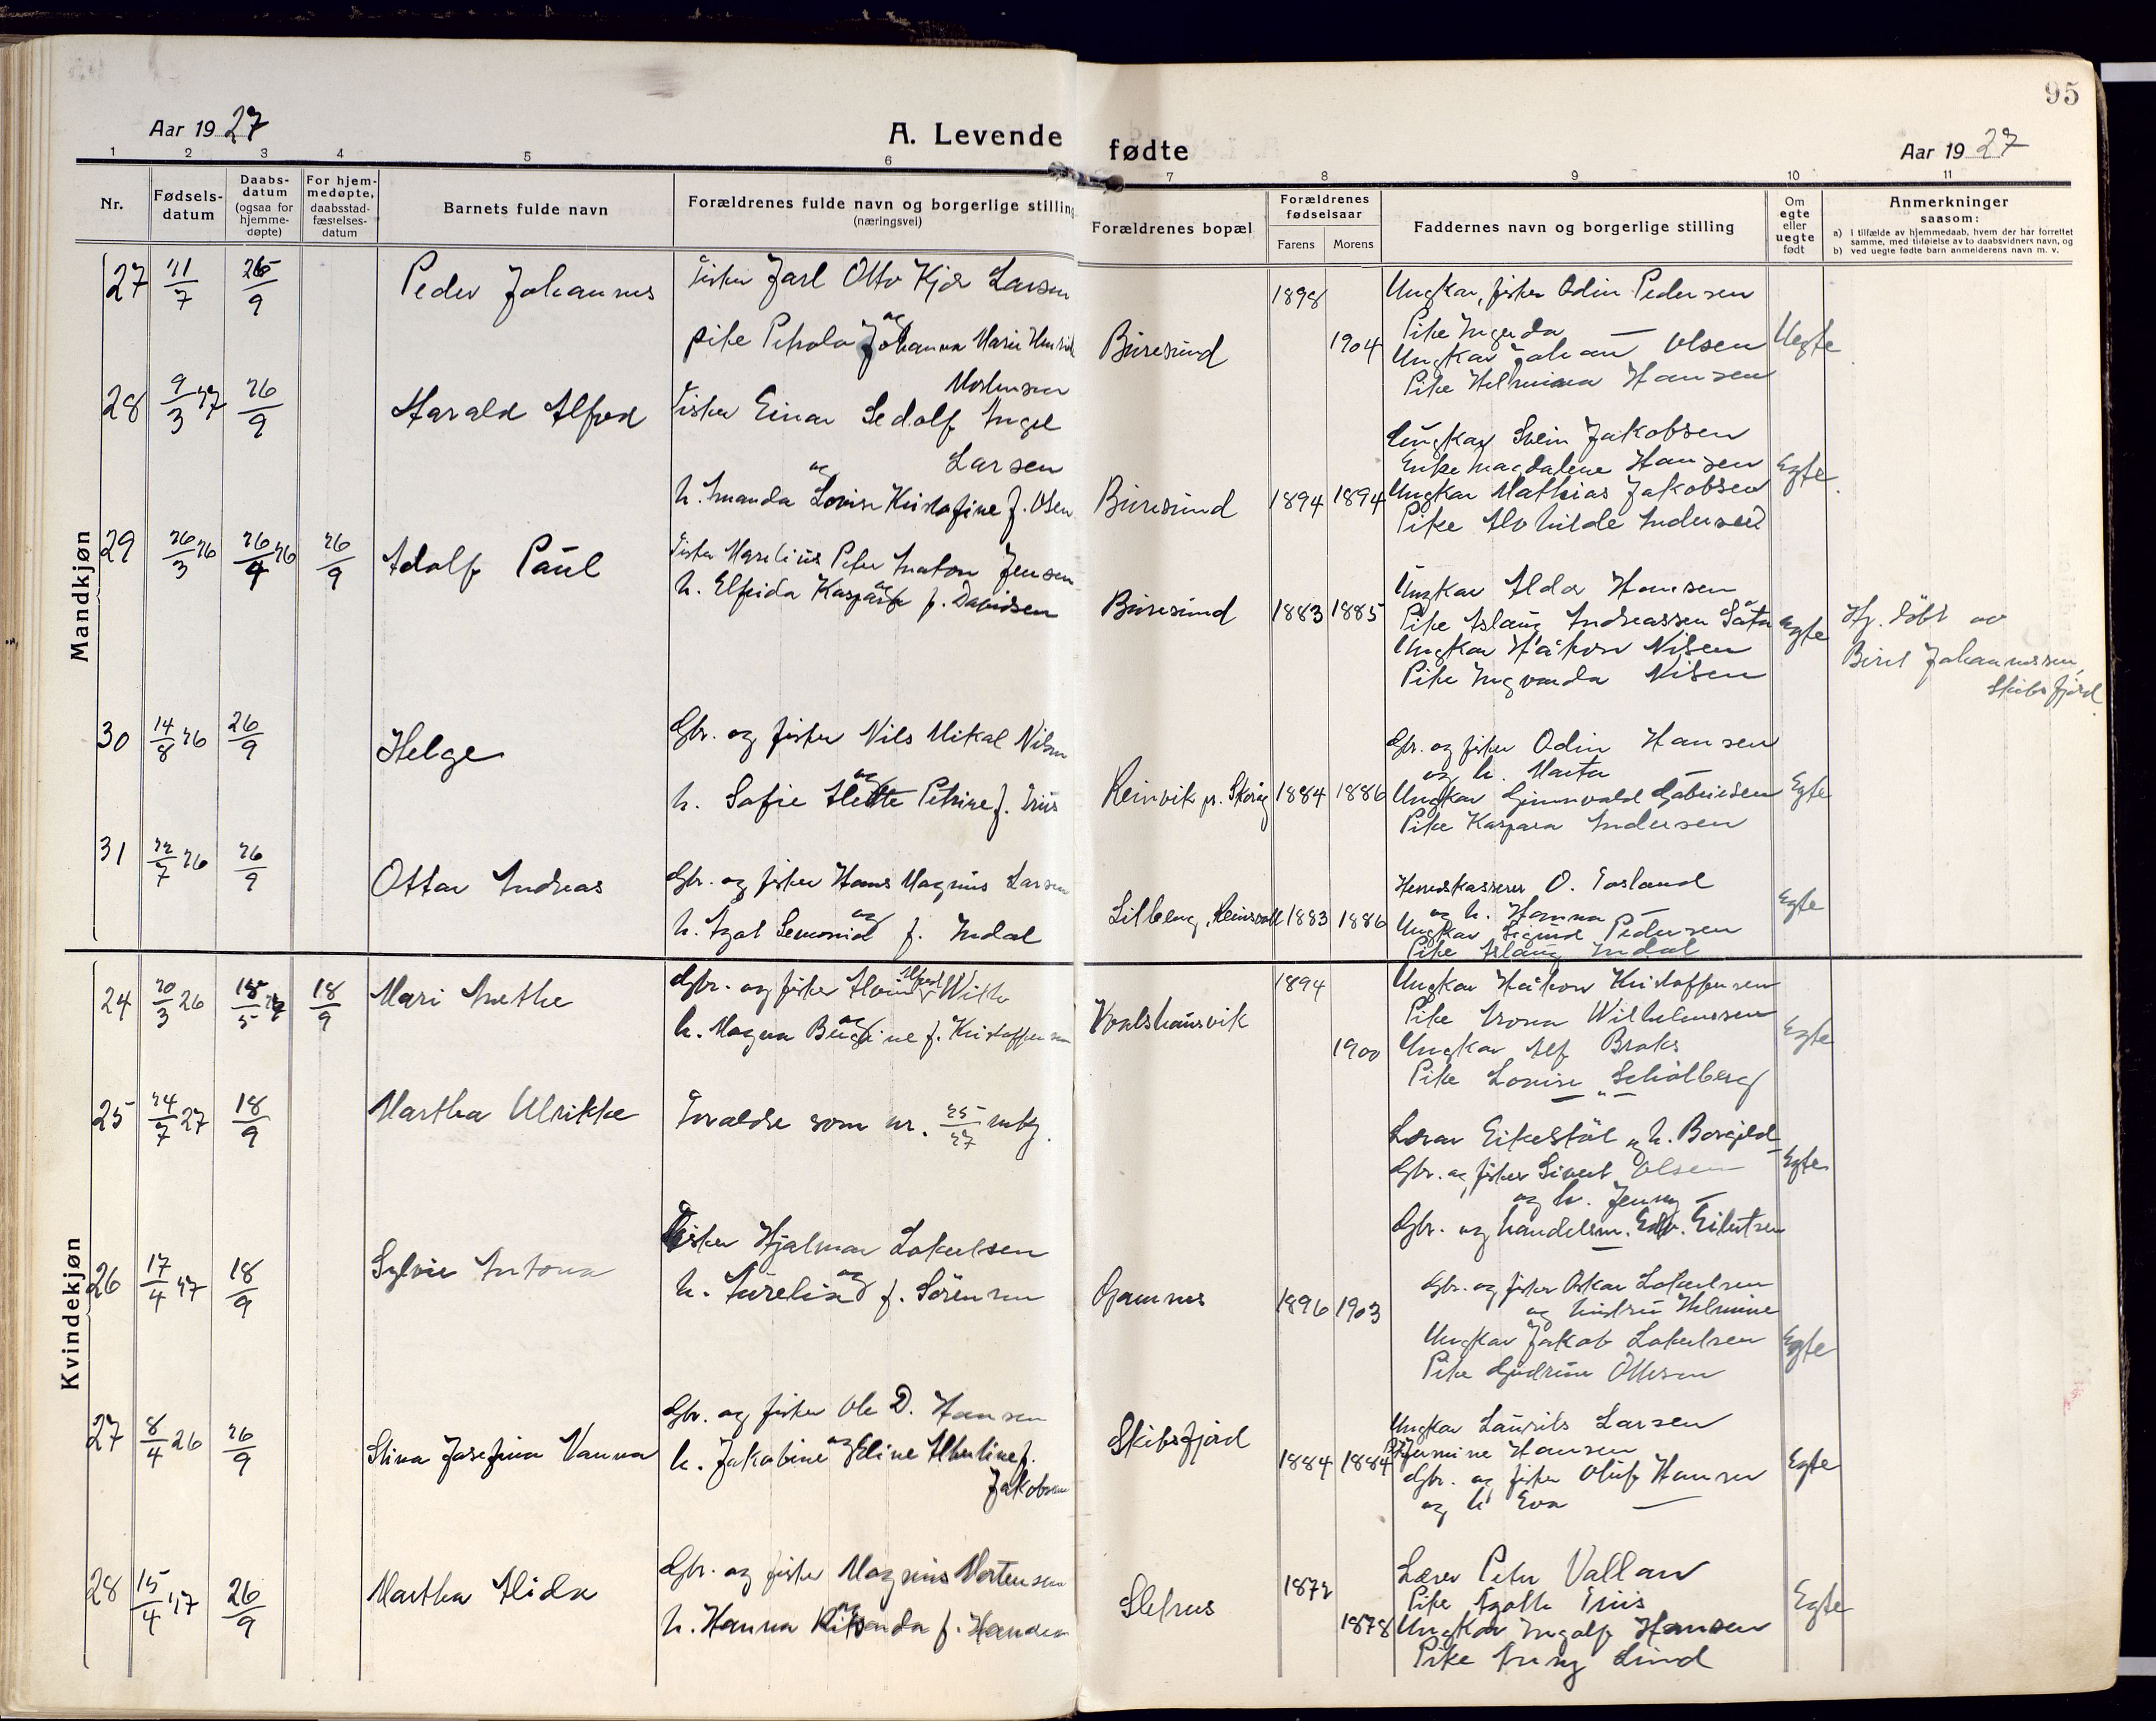 95
Aar 1927
A. Levende fødte
Aar 1927
1 2 3 4 5 6 7 8 9 10 11
Nr.
Fødsels-
datum
Daabs-
datum
(ogsaa for
hjemme-
døpte)
For hjem-
medøpte,
daabsstad-
fæstelses-
datum
Barnets fulde navn
Forældrenes fulde navn og borgerlige stilling
(næringsvei)
Forældrenes bopæl
Forældrenes
fødselsaar
Farens Morens
Faddernes navn og borgerlige stilling
Om
egte
eller
uegte
født
Anmerkninger
saasom:
a) i tilfælde av hjemmedaab, hvem der har forrettet
samme, med tilføielse av to daabsvidners navn, og
b) ved uegte fødte barn anmelderens navn m. v.
Mandkjøn
27 11/7 26/9 Peder Johannes
Fisker Jarl Otto Kjær Larsen
og
pike Petrola Johanna Marie
Mortensen
Buresund 1898 1904
Ungkar, fisker Odin Pedersen
Pike Ingerda —
Ungkar Johan Olsen
Pike Helmina Hansen
Uegte
28 9/3 27 26/9 Harald Alfred
Fisker Einar Sedolf Ingel
Larsen
og
h. Amanda Lovise Kristofine f. Olsen
Buresund 1894 1894
Ungkar Svein Jakobsen
Enke Magdalene Hansen
Ungkar Mathias Jakobsen
Pike Alvhilde Andersen
Egte
29 26/3 26 26/4 26 26/9 Adolf Paul
Fisker Marelius Peter Anton Jensen
og
h. Elfrida Kaspara f. Davidsen
Buresund 1883 1885
Ungkar Aldor Hansen
Pike Aslaug Andreassen Såta
Ungkar Håkon Nilsen
Pike Ingvarda Nilsen
Egte
Hj. døbt av
Berit Johannessen,
Skibsfjord.
30 14/8 26 26/9 Helge
Gbr. og fisker Nils Mikal Nilsen
og
h. Sofie Alette Petrine f. Friis
Reinvik pr. Skorøy 1884 1886
Gbr. og fisker Odin Hansen
og h. Marta —
Ungkar Gunnvald Gabrielsen
Pike Kaspara Andersen
Egte
31 22/7 26 26/9 Ottar Andreas
Gbr. og fisker Hans Magnus Larsen
og
h. Agot f. Indal
Lilleberg, 1883 1886
Herredskasserer O. Tosland
og h. Hanna —
Ungkar Sigurd Pedersen
Pike Aslaug Indal
Egte
Kvindekjøn
24 20/3 26 18/5 18/9 Mari Anethe
Gbr. og fisker Alvin Alfred With
og
h. Magna Bergine f. Kristoffersen
Kvalshausvik 1894 1900
Ungkar Håkon Kristoffersen
Pike Arona Wilhelmsen
Ungkar Alf Braks
Pike Lovise Schølberg
Egte
25 24/7 27 18/9 Martha Ulrikke
Forældre som nr. 25/27 mkj.
Lærer Eikestøl og h. Borghild —
Gbr. og fisker Sivert Olsen
og h. Jenny —
Gbr. og handelsm. Edv. Eilertsen
Egte
26 17/4 27 18/9 Sylvie Antona
Fisker Hjalmar Lokertsen
og
h. Aurelia f. Sörensen
Gamnes 1896 1903
Gbr. og fisker Oskar Lokertsen
og hustru Helmine
Ungkar Jakob Lokertsen
Pike Gudrun Ottesen
Egte
27 8/4 26 26/9 Stina Josefina Vanna
Gbr. og fisker Ole D. Hansen
og
h. Jakobine Eline Albertine f.
Jakobsen
Skibsfjord 1884 1884
Ungkar Laurits Larsen
Hermine Hansen
Gbr. og fisker Oluf Hansen
og h. Eva —
Egte
28 15/4 27 26/9 Martha Alida
Gbr. og fisker Magnus Mortensen
og
h. Hanna f. Hansen
Sletnes 1872 1878
Lærer Peter Vallan
Pike Agathe Friis
Ungkar Ingolf Hansen
Pike Anny Lind
Egte